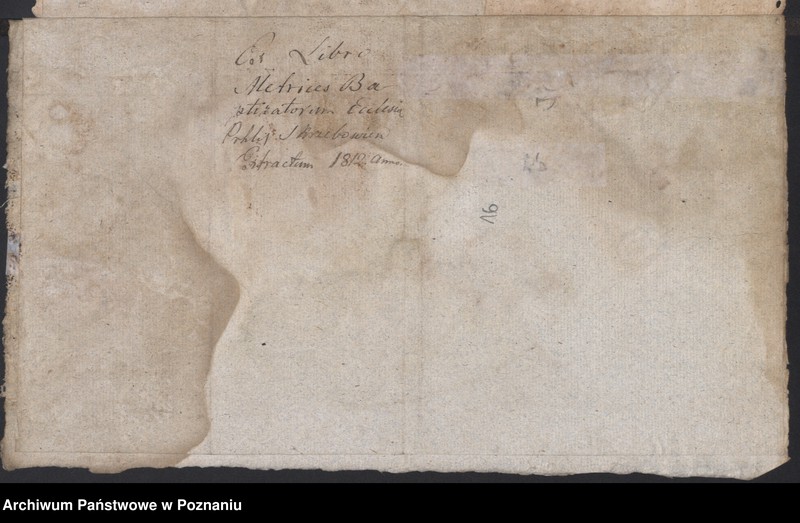 Ex Libro
Metrices Ba
ptizatorum Ecclesiæ
Skrzebowien
Extractum 1812 Anno.
16
Archiwum Państwowe w Poznaniu